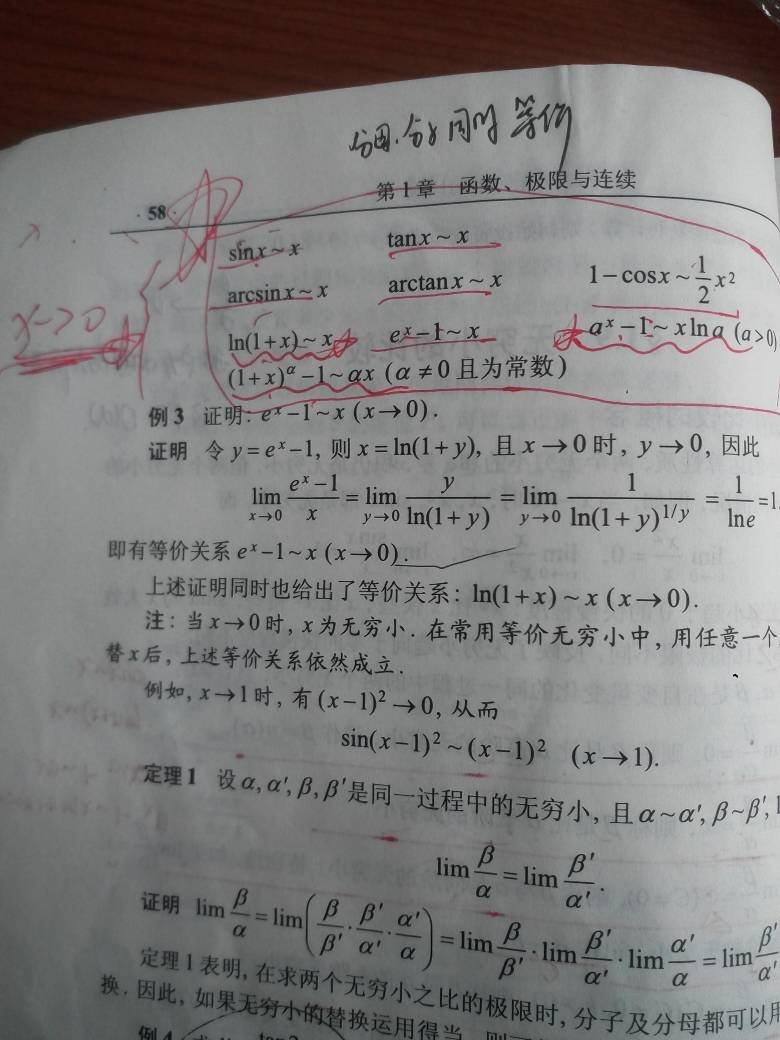 分母.分子同时等价
·58· 第1章 函数、极限与连续
x->0
sinx~x tanx~x
arcsinx~x arctanx~x 1-cosx~\frac{1}{2}x²
ln(1+x)~x eˣ-1~x aˣ-1~xlna (a>0)
(1+x)^α-1~αx (α≠0且为常数)
例3 证明: eˣ-1~x (x→0).
证明 令y=eˣ-1, 则x=ln(1+y), 且x→0时, y→0, 因此
\lim_{x→0}\frac{eˣ-1}{x}=\lim_{y→0}\frac{y}{ln(1+y)}=\lim_{y→0}\frac{1}{ln(1+y)^{1/y}}=\frac{1}{lne}=1.
即有等价关系eˣ-1~x (x→0)
上述证明同时也给出了等价关系: ln(1+x)~x (x→0).
注: 当x→0时, x为无穷小. 在常用等价无穷小中, 用任意一个
替x后, 上述等价关系依然成立.
例如, x→1时, 有(x-1)²→0, 从而
sin(x-1)²~(x-1)² (x→1).
定理1 设α,α′,β,β′是同一过程中的无穷小, 且α~α′,β~β′,
lim\frac{β}{α}=lim\frac{β′}{α′}.
证明 lim\frac{β}{α}=lim(\frac{β}{β′}·\frac{β′}{α′}·\frac{α′}{α})=lim\frac{β}{β′}·lim\frac{β′}{α′}·lim\frac{α′}{α}=lim\frac{β′}{α′}
定理1表明, 在求两个无穷小之比的极限时, 分子及分母都可以用
换. 因此, 如果无穷小的替换运用得当
例4